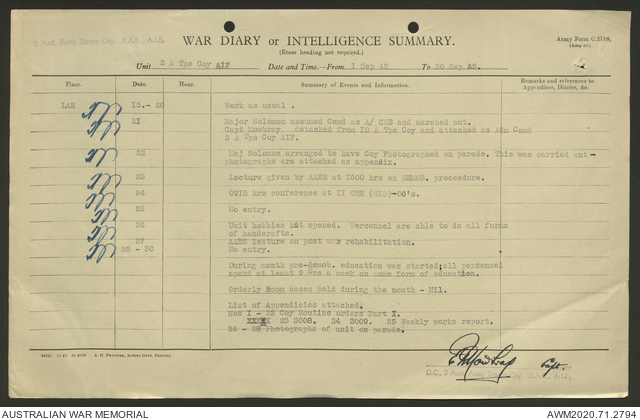 2 Aust. Army Troops Coy. R.A.E. A.I.F.
WAR DIARY or INTELLIGENCE SUMMARY.
(Erase heading not required.)
Army Form C.2118.
Unit 2 A Tps Coy AIF Date and Time—From 1 Sep 45 To 30 Sep 45.
Place. Date. Hour. Summary of Events and Information. Remarks and references to Appendices, Diaries, &c.
LAE 15.- 20 Work as usual .
21 Major Solomon assumed Comd as A/ CRE and marched out.
Capt Mowbray detached from 10 A Tps Coy and attached as Adm Comd
2 A Tps Coy AIF.
22 Maj Solomon arranged to have Coy Photographed on parade. This was carried out-
photographs are attached as Appendix.
23 Lecture given by AAES at 1600 hrs on proceedure.
24 0915 hrs conference at 11 CRE (WKS)-06's.
25 No entry.
26 Unit hobbies hut opened. Personnel are able to do all forms
of handcrafts.
27 AAES lecture on post war rehabilitation.
28 - 30 No entry.
During month pre-demob. education was started; all personnel
spend at least 9 hrs a week on some form of education.
Orderly Room cases held during the month - Nil.
List of Appendicies attached.
Nos 1 - 22 Coy Routine orders Part I.
23 3008. 24 3009. 25 Weekly works report.
26 - 28 Photographs of unit on parade.
Mowbray Capt.
O.C. 2 Aust. Army Troops Coy. R.A.E. A.I.F.
AUSTRALIAN WAR MEMORIAL
AWM2020.71.2794